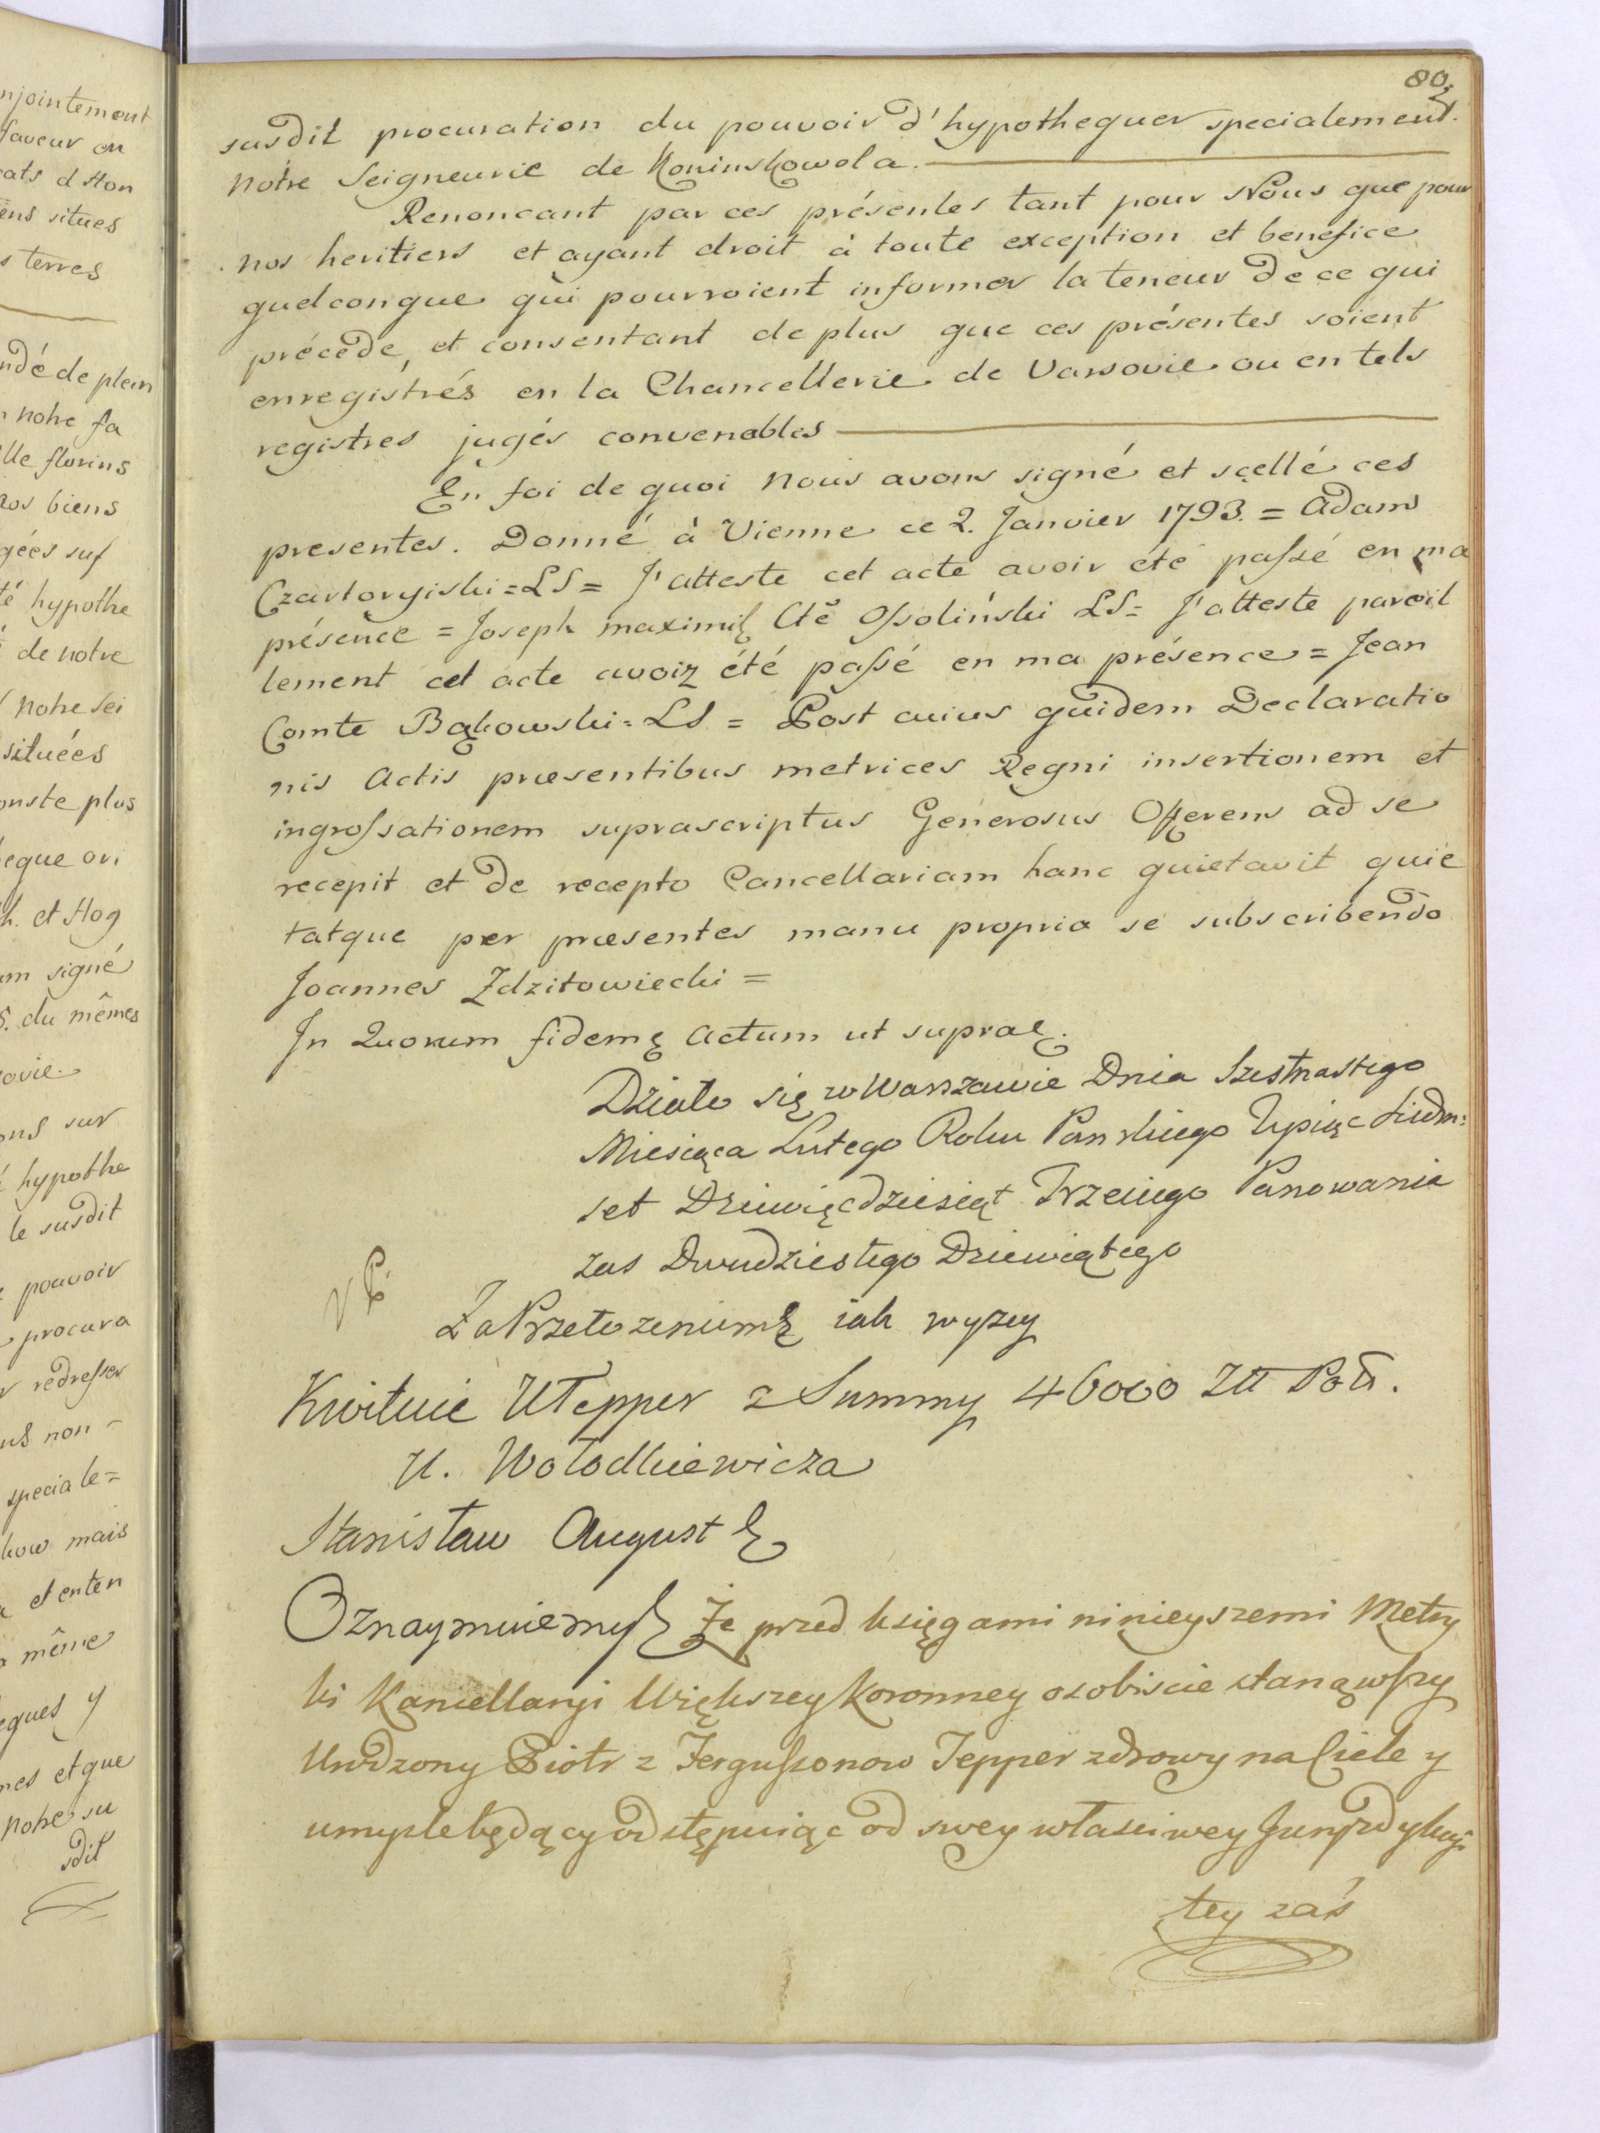 njointement
faveur en
cats d Hon
ens situes
s terres
ndé de plein
notre fa
lle florins
nos biens
gées suf
té hypothe
de notre
notre sei
situées
onste plus
eque ori
h. et Hog
am signé
S. du mêmes
sovie.
ons sur
hypothe
le susdit
pouvoir
procura
r redresser
us non -
speciale=
kow mais
a et enten
a même
eques y
nes et que
notre su
sdit
80.
susdit procuration du pouvoir d'hypothequer specialement.
notre Seigneurie de Koninskowola.
Renoncant par ces présentes tant pour Nous que pour
nos heritiers et ayant droit à toute exception et benefice
quelconque qui pourroient informer la teneur de ce qui
précede, et consentant de plus que ces présentes soient
enregistrés en la Chancellerie de Varsovie ou en tels
registres jugés convenables
En foi de quoi nous avons signé et scellé ces
presentes. Donné à Vienne ce 2. Janvier 1793. = Adam
Czartoryiski = LS = J'atteste cet acte avoir été passé en ma
présence = Joseph maximil Cte Ossoliński LS = J'atteste pareil
lement cet acte avoir été passé en ma présence = Jean
Comte Bąkowski = LS = Post cuius quidem Declaratio
nis Actis præsentibus metrices Regni insertionem et
ingrossationem suprascriptus Generosus Offerens ad se
recepit et de recepto Cancellariam hanc quietavit quie
tatque per præsentes manu propria se subscribendo
Joannes Zdzitowiecki =
In Quorum fidem Actum ut supra.
Działo się w Warszawie Dnia Szestnastego
Miesiąca Lutego Roku Panskiego Tysiąc siedm:
set Dziewięcdziesiąt Trzeciego Panowania
zas Dwudziestego Dziewiątego
Za Przełozeniem iak wyzey
Kwituie U Tepper z Summy 46000 Złł Pols.
U. Wołodkiewicza
Stanisław August
Oznaymuiemy Że przed księgami ninieyszemi Metry
ki Kancellaryi Większey Koronney osobiscie stanąwszy
Urodzony Piotr z Fergussonow Tepper zdrowy na Ciele y
umysle będący odstępuiąc od swey własciwey Juryzdykcyi
tey zaś